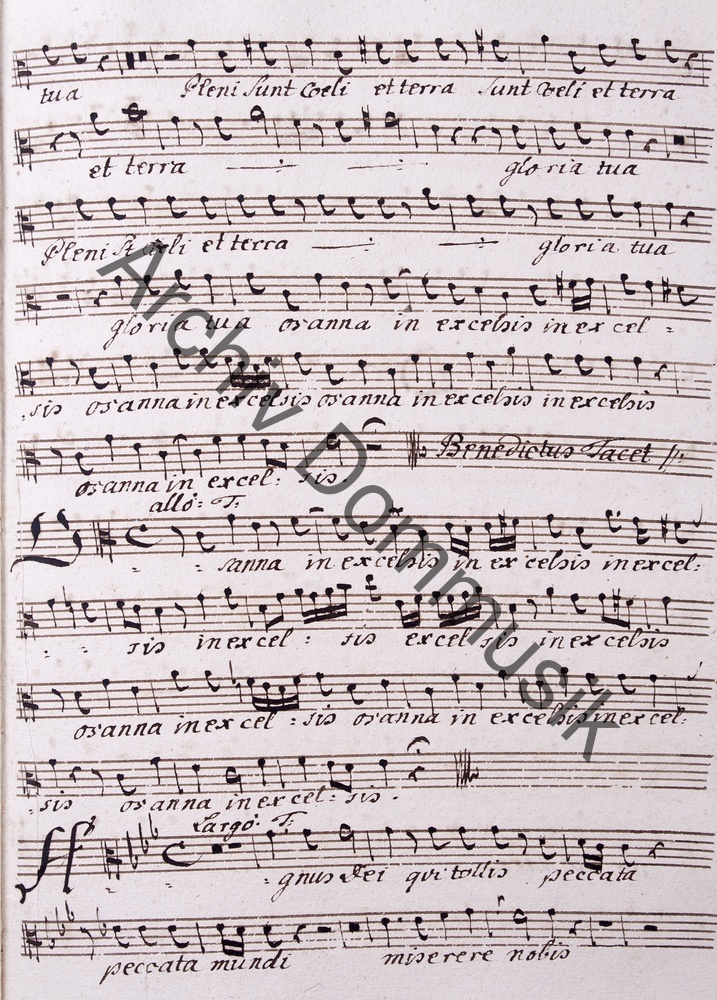 tua Pleni sunt coeli et terra sunt coeli et terra
et terra gloria tua
Pleni st coeli et terra gloria tua
gloria tua osanna in excelsis in excel =
= sis osanna in excelsis osanna in excelsis in excelsis
osanna in excel: sis. Benedictus Tacet
allo: T:
sanna in excelsis in excelsis in excel:
sis in excel: sis excel sis in excelsis
osanna in excel: sis osanna in excelsis in excel:
: sis osanna in excel: sis.
Largo: T:
A = gnus Dei qui tollis peccata
peccata mundi miserere nobis
Archiv Dommusik